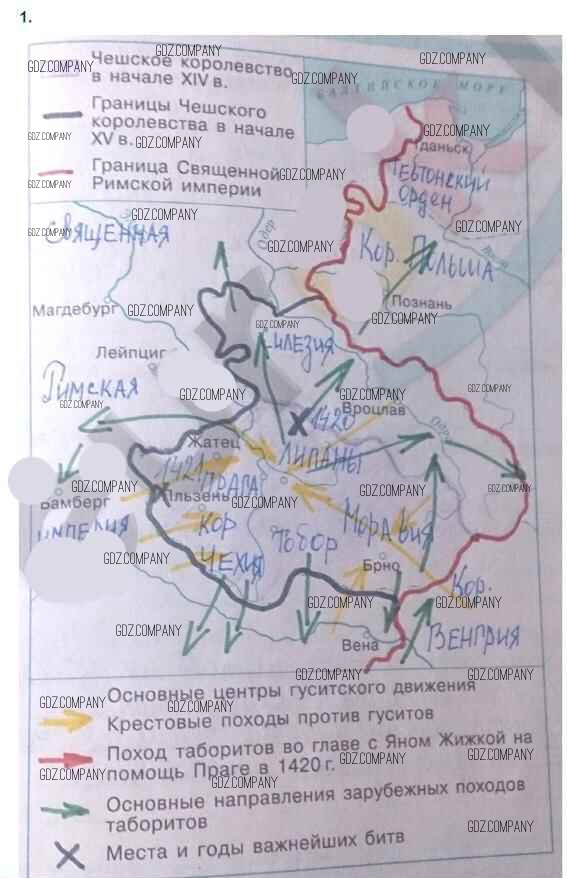 1.
Чешское королевство
в начале XIV в.
Границы Чешского
королевства в начале
XV в.
Граница Священной
Римской империи
БАЛТИЙСКОЕ МОРЕ
Гданьск
Тевтонский
орден
Священная
Одер
Кор. Польша
Магдебург
Познань
Силезия
Лейпциг
Римская
1420
Вроцлав
Одер
Жатец
Липаны
1421
Прага
Пльзень
Бамберг
империя
Кор
Чехия
Табор
Моравия
Брно
Кор.
Венгрия
Вена
Основные центры гуситского движения
Крестовые походы против гуситов
Поход таборитов во главе с Яном Жижкой на
помощь Праге в 1420 г.
Основные направления зарубежных походов
таборитов
Места и годы важнейших битв
GDZ.COMPANY